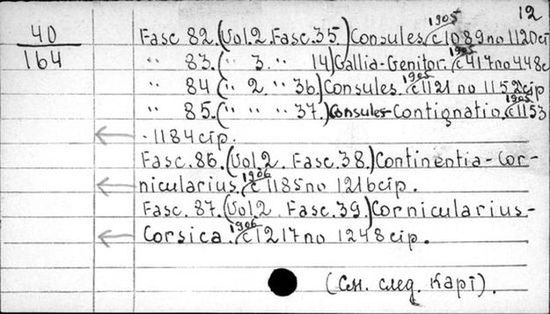 12
40
164
Fasc 82. (Vol.2. Fasc. 35) Consules. 1905 (с 1089 по 1120 стр
" 83. ( " 3. " 14) Gallia-Genitor. 1905 (с 417 по 448 с
" 84 ( " 2. " 36) Consules. 1905 (с 1121 по 1152 стр
" 85. ( " " " 37.) Consules-Contignatio. 1905 (с 1153
-1184 стр.
Fasc. 86. (Vol.2. Fasc. 38.) Continentia-Cor-
nicularius. 1906 (с 1185 по 1216 стр.
Fasc. 87. (Vol.2. Fasc. 39.) Cornicularius-
Corsica. 1906 (с 1217 по 1248 стр.
(См. след. карт).